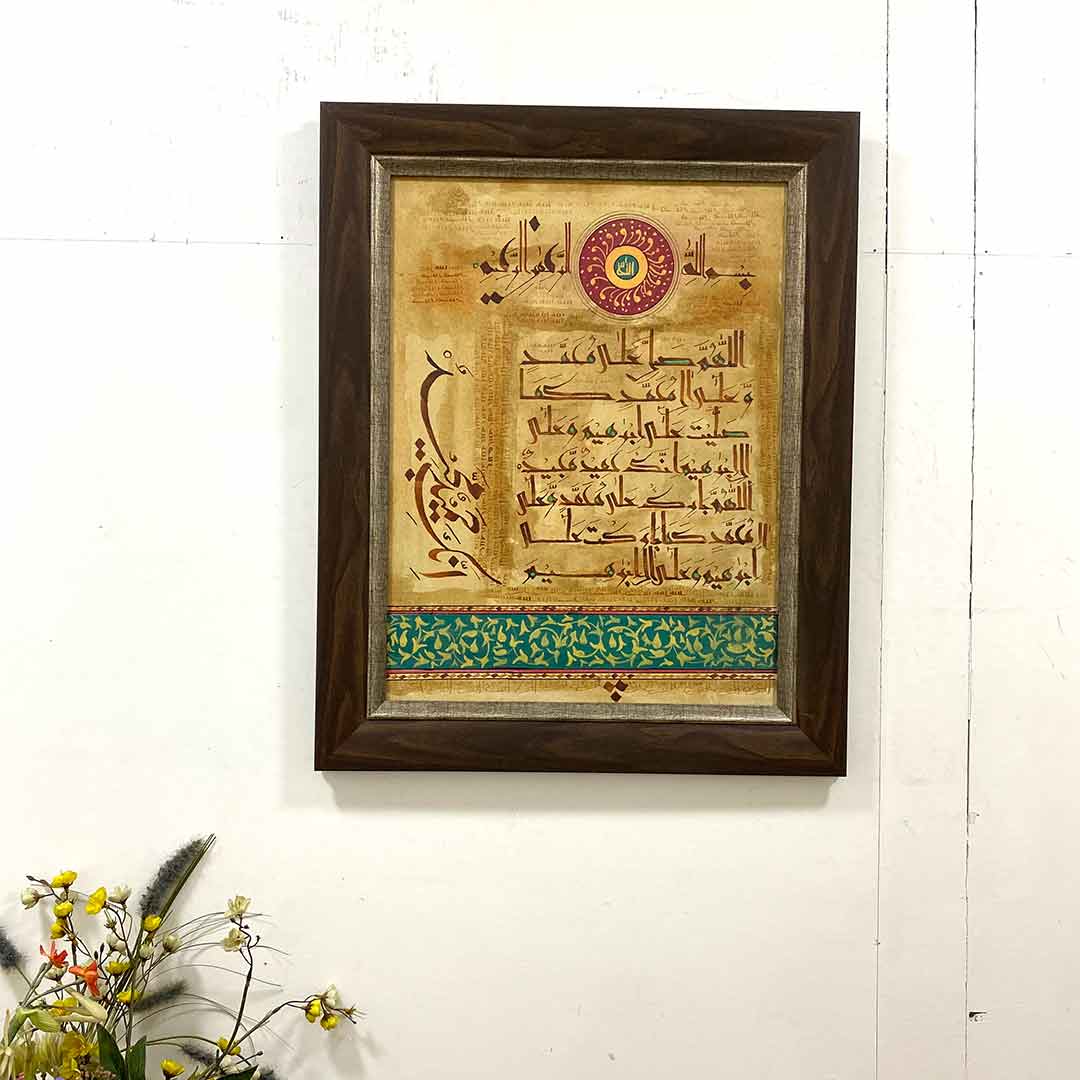 بسم الله الرحمن الرحيم
الله
اللهم صل على محمد
و على ال محمد كما
صليت على ابرهيم و على
ال ابرهيم انك حميد مجيد
اللهم بارك على محمد و على
ال محمد كما باركت على
ابرهيم و على ال ابرهيم
انك حميد مجيد